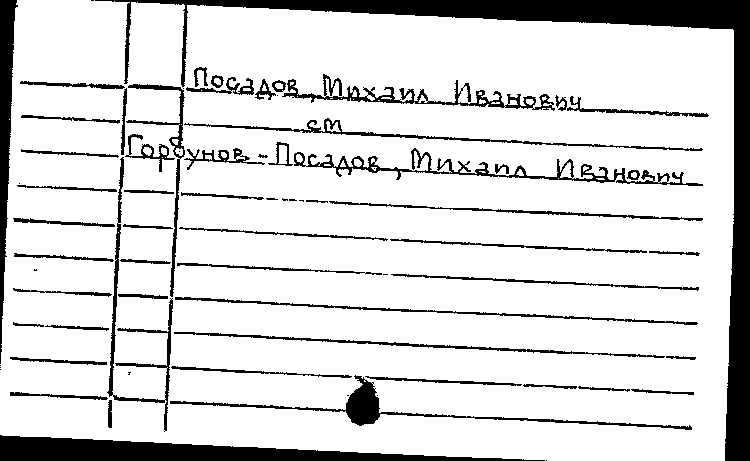 Посадов, Михаил Иванович
см
Горбунов-Посадов, Михаил Иванович